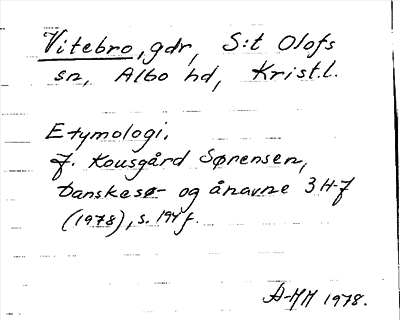 Vitebro, gdr, S:t Olofs
sn, Albo hd, Krist.l.
Etymologi.
J. Kousgård Sørensen,
Danske sø- og ånavne 3 H-J
(1978), s. 194 f.
A-MH 1978.